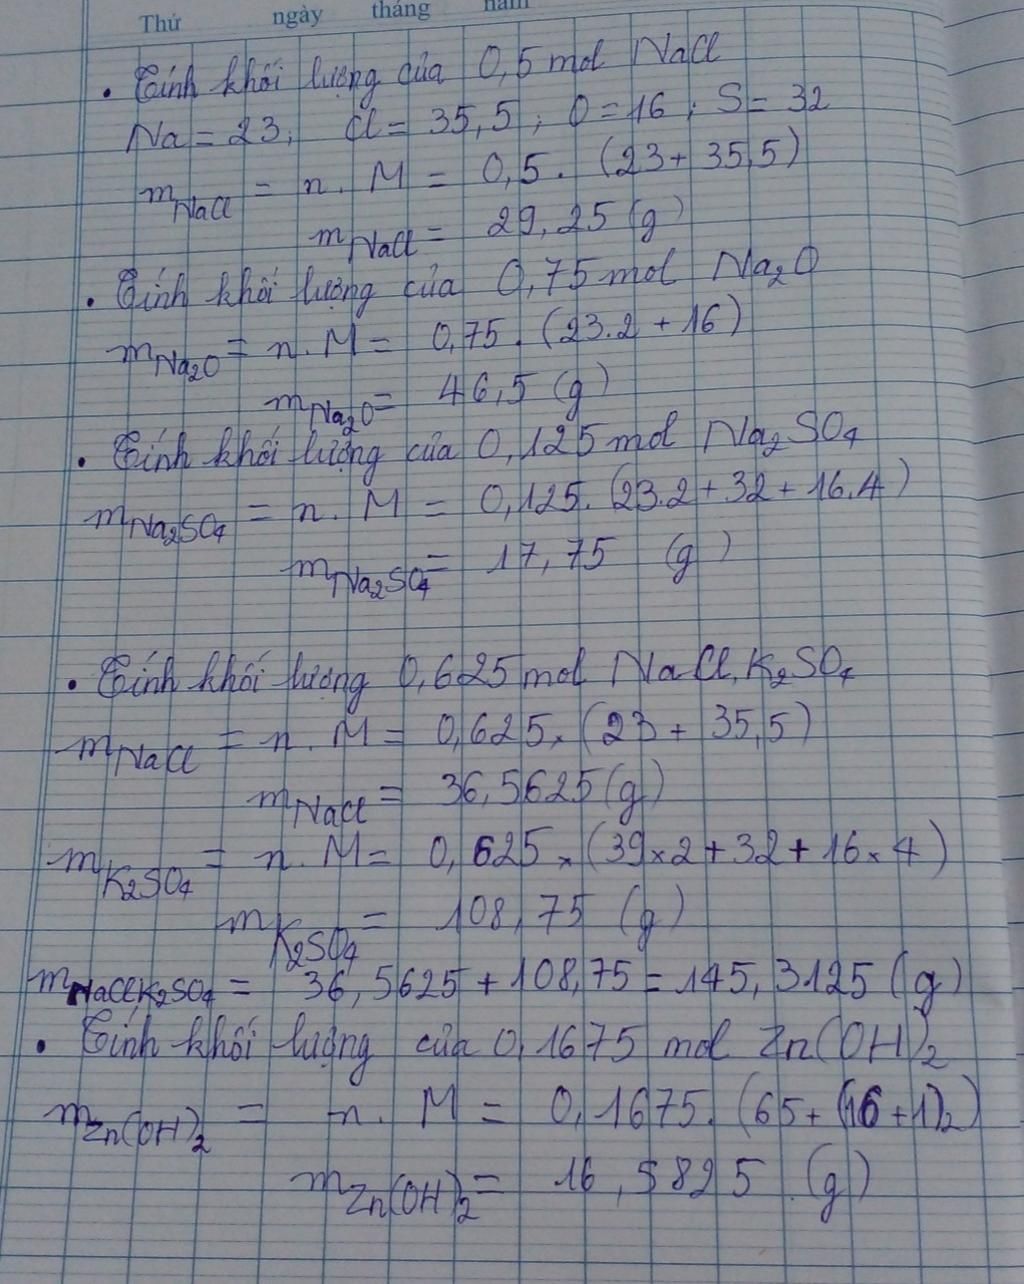 Thứ ngày tháng năm
. Tính khối lượng của 0,5 mol NaCl
Na = 23, Cl = 35,5 ; O = 16 ; S = 32
mNaCl = n . M = 0,5 . (23 + 35,5)
mNaCl = 29,25 (g)
. Tính khối lượng của 0,75 mol Na₂O
mNa₂O = n . M = 0,75 . (23.2 + 16)
mNa₂O = 46,5 (g)
. Tính khối lượng của 0,125 mol Na₂SO₄
mNa₂SO₄ = n . M = 0,125. (23.2 + 32 + 16.4)
mNa₂SO₄ = 17,75 (g)
. Tính khối lượng 0,625 mol NaCl, K₂SO₄
mNaCl = n . M = 0,625 × (23 + 35,5)
mNaCl = 36,5625 (g)
mK₂SO₄ = n . M = 0,625 × (39 × 2 + 32 + 16 × 4)
mK₂SO₄ = 108,75 (g)
mNaClK₂SO₄ = 36,5625 + 108,75 = 145,3125 (g)
. Tính khối lượng của 0,1675 mol Zn(OH)₂
mZn(OH)₂ = n . M = 0,1675. (65 + (16 + 1).2)
mZn(OH)₂ = 16,5825 (g)